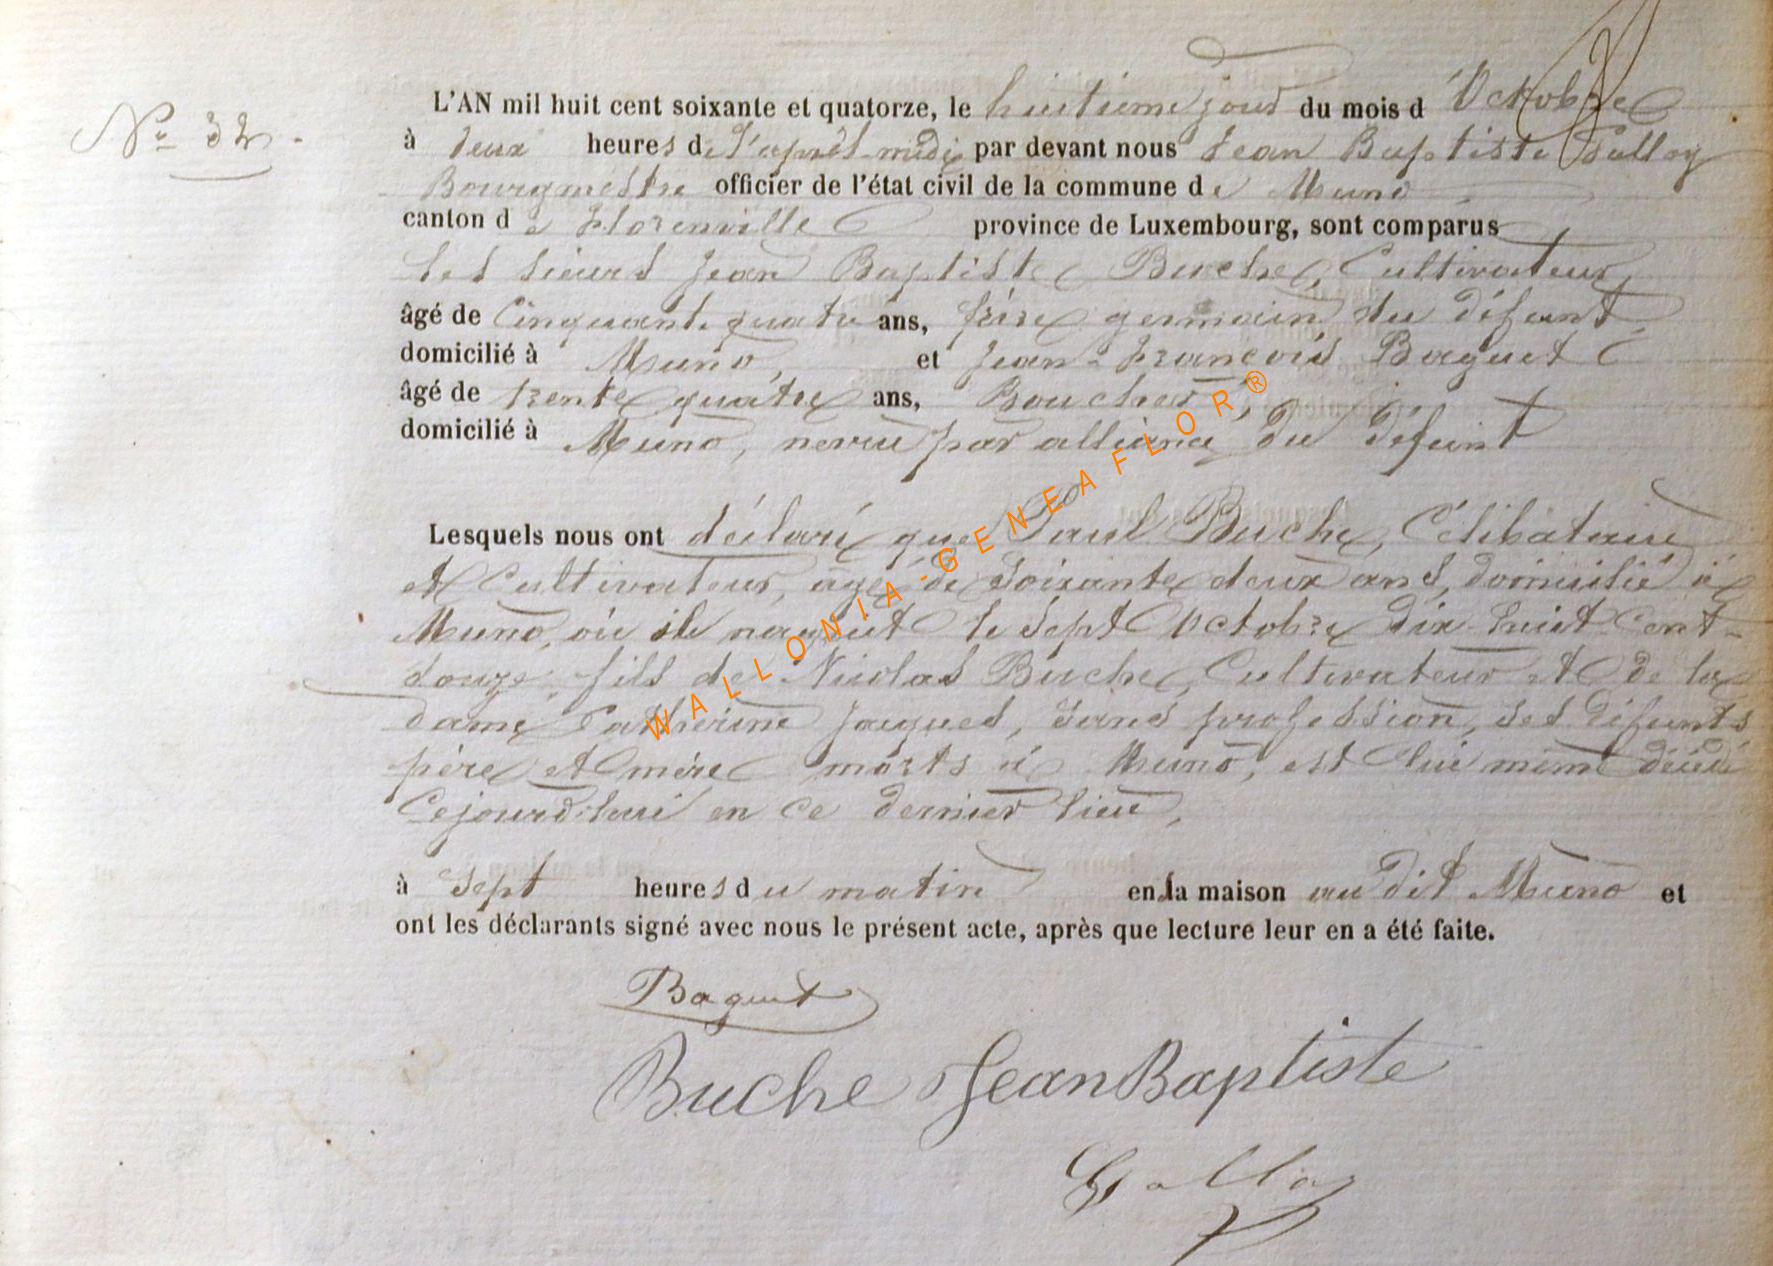 N° 32.
L'AN mil huit cent soixante et quatorze, le huitième jour du mois d'Octobre
à deux heures de l'après-midi par devant nous Jean Baptiste
Bourgmestre officier de l'état civil de la commune de Muno
canton de Florenville province de Luxembourg, sont comparus
les sieurs Jean Baptiste Buche, Cultivateur,
âgé de Cinquante quatre ans, frère germain du défunt,
domicilié à Muno, et Jean-François Baquet
âgé de trente quatre ans, Boucher,
domicilié à Muno, neveu par alliance du défunt
Lesquels nous ont déclaré que Paul Buche, Célibataire
et Cultivateur, âgé de soixante deux ans, domicilié à
Muno, où il naquit le sept Octobre dix-huit-cent-
douze, fils de Nicolas Buche, Cultivateur et de la
dame Catherine Jaques, sans profession, ses défunts
père et mère morts à Muno, est lui même décédé
Cejourd'hui en ce dernier lieu,
à sept heures du matin en la maison au dit Muno et
ont les déclarants signé avec nous le présent acte, après que lecture leur en a été faite.
Baquet
Buche Jean Baptiste
WALLONIA-GENEAFLOR®